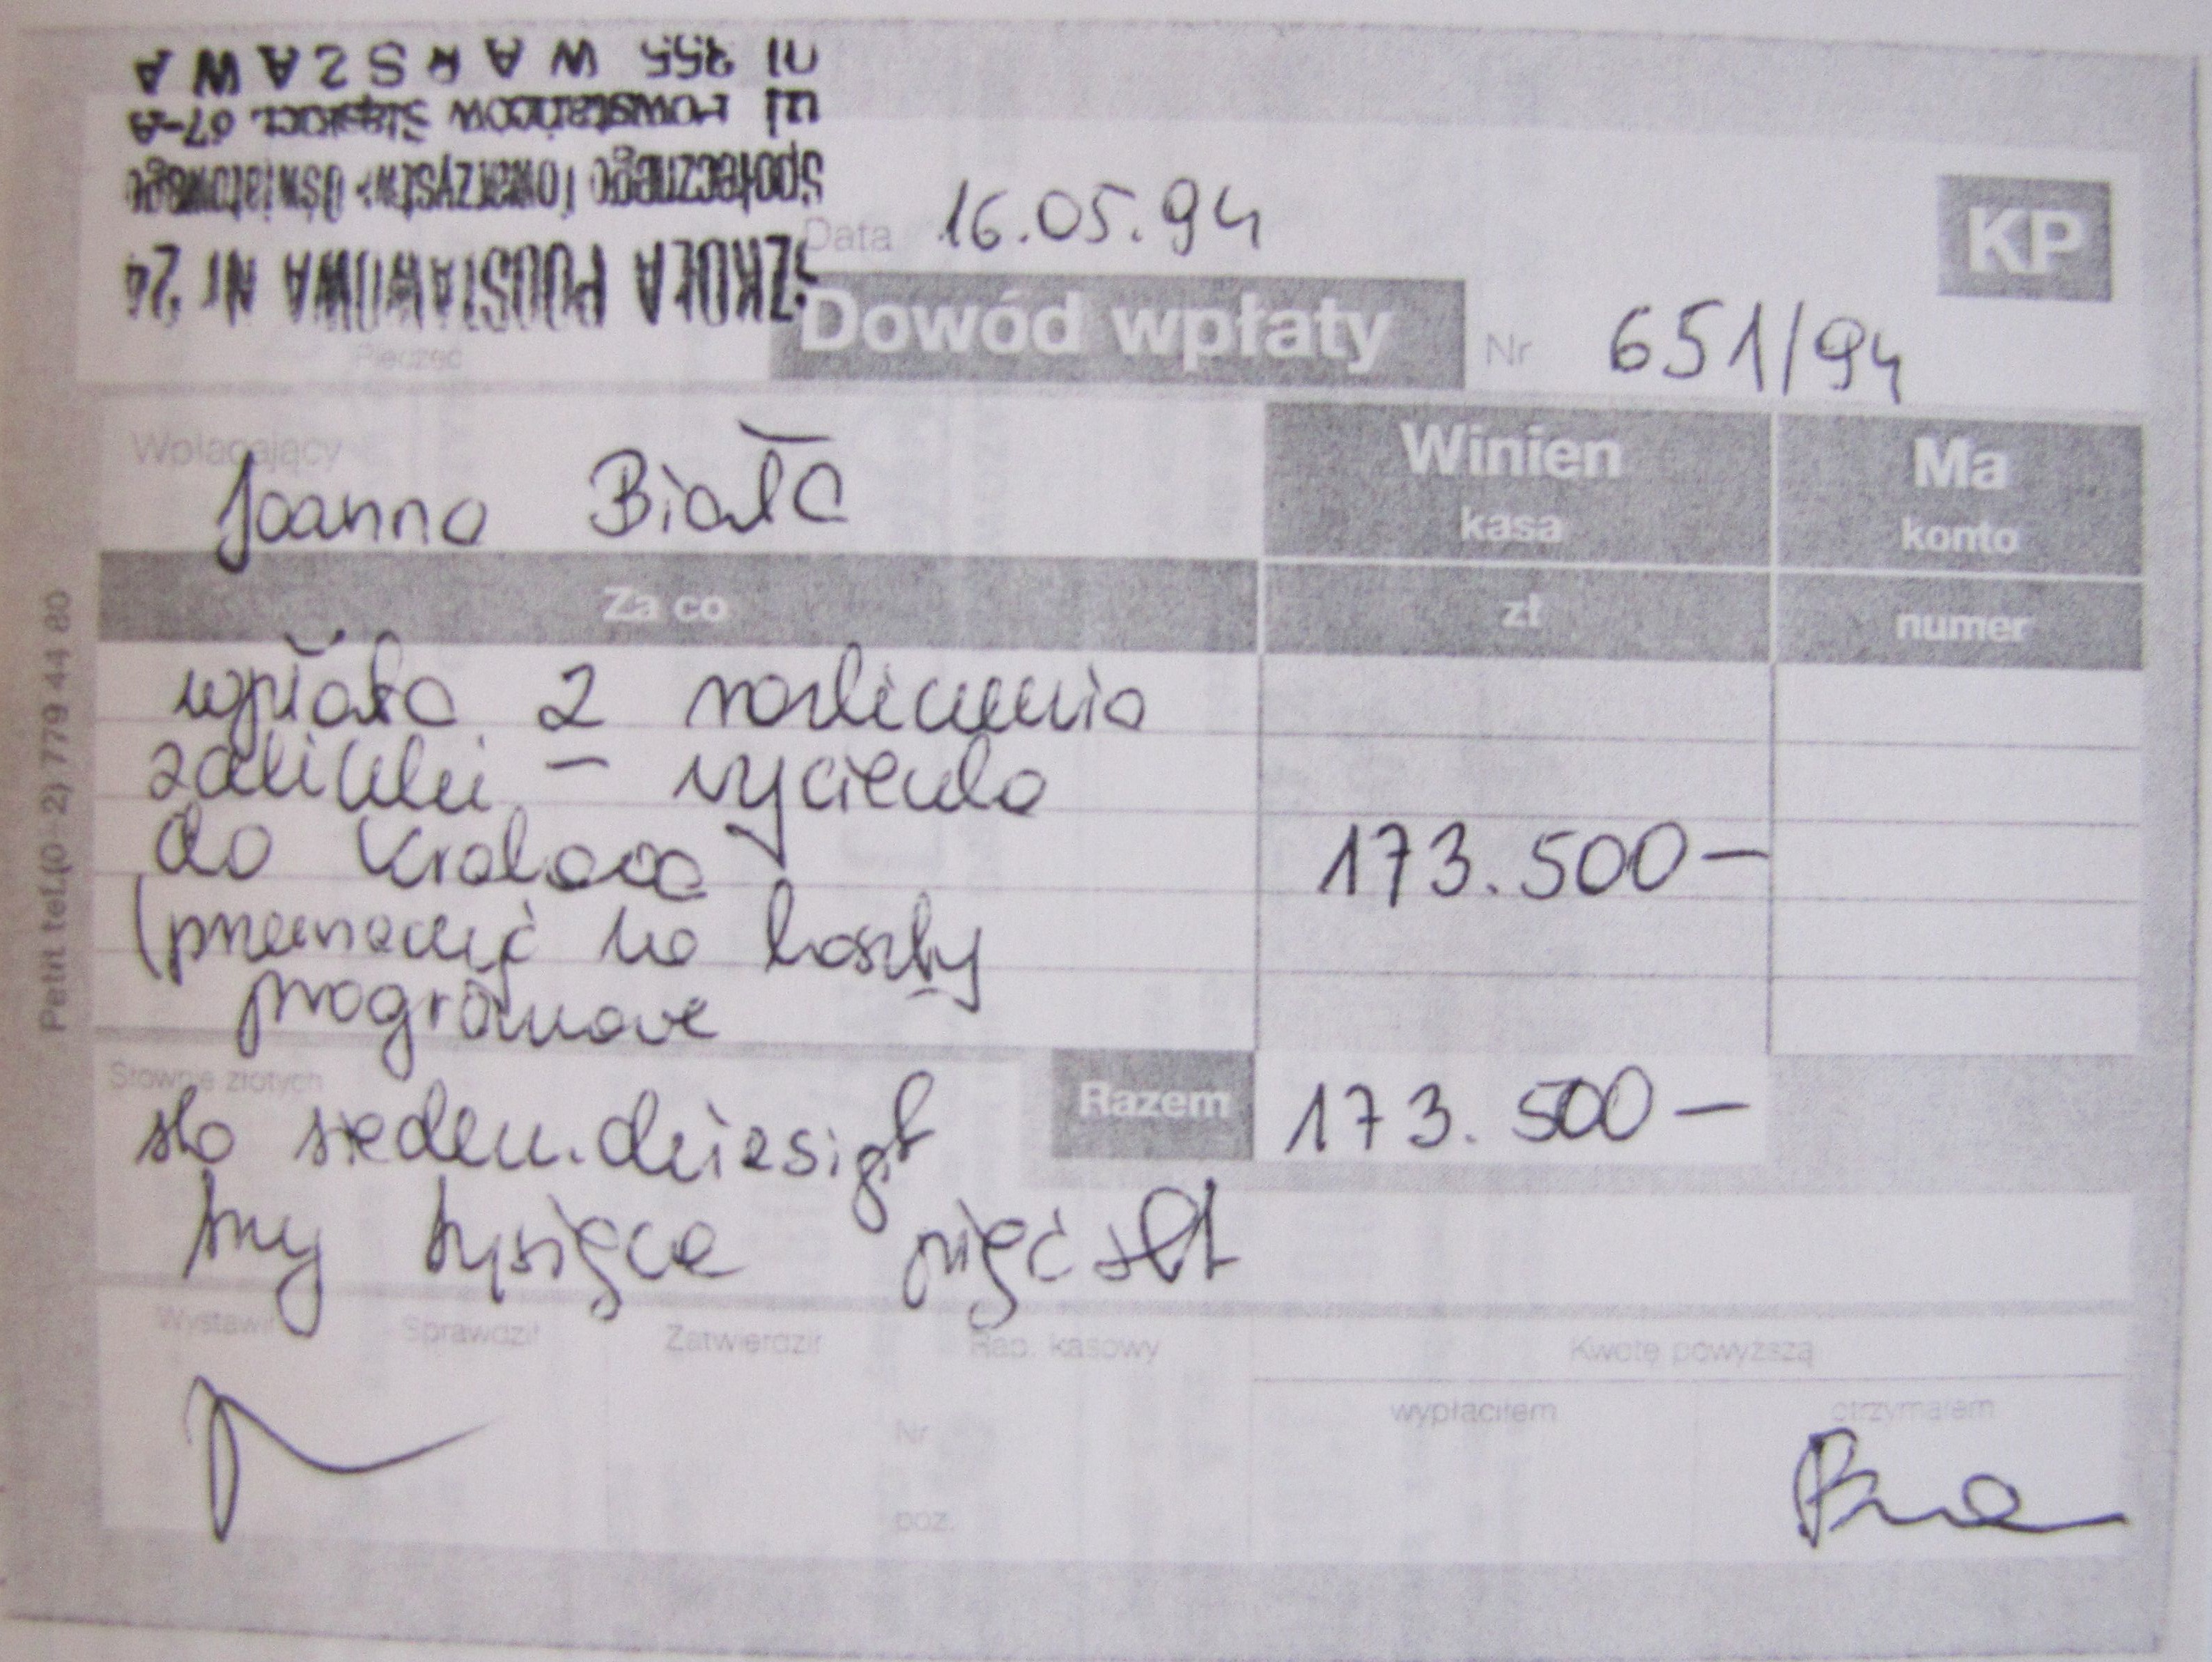 SZKOŁA PODSTAWOWA Nr 24
Społecznego Towarzystwa Oświatowego
ul Powstańców Śląskich 67-A
01 355 WARSZAWA
Pieczęć
Data 16.05.94
KP
Dowód wpłaty
Nr 651/94
Wpłacający
Joanna Biała
Winien
kasa
Ma
konto
Za co
zł
numer
wpłata z rozliczenia
zaliczki - wycieczka
do Krakowa
173.500-
(przeznaczyć na koszty
programowe
Słownie złotych
Razem
173.500-
sto siedemdziesiąt
trzy tysiące pięćset
Wystawił
Sprawdził
Zatwierdził
Rap. kasowy
Kwotę powyższą
wypłaciłem
otrzymałem
Nr
poz.
Petit tel.(0-2) 779 44 80